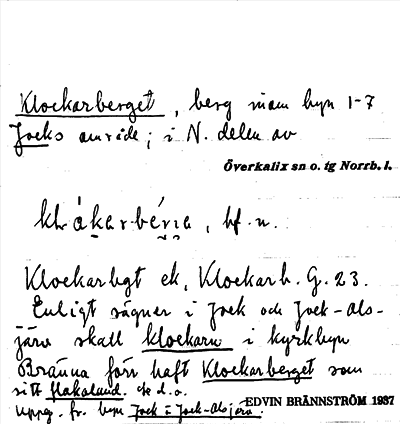 Klockarberget, berg inom byn 1-7
Jocks område; i N. delen av
Överkalix sn o. tg Norrb. l.
bf. n.
Klockarbgt ek, Klockarb. G. 23.
Enligt sägner i Jock och Jock-Als-
järv skall klockarn i kyrkbyn
Bränna förr haft Klockarberget som
sitt flakaland. ek d.o.
Uppg. fr. byn Jock i Jock-Alsjärv.
EDVIN BRÄNNSTRÖM 1937